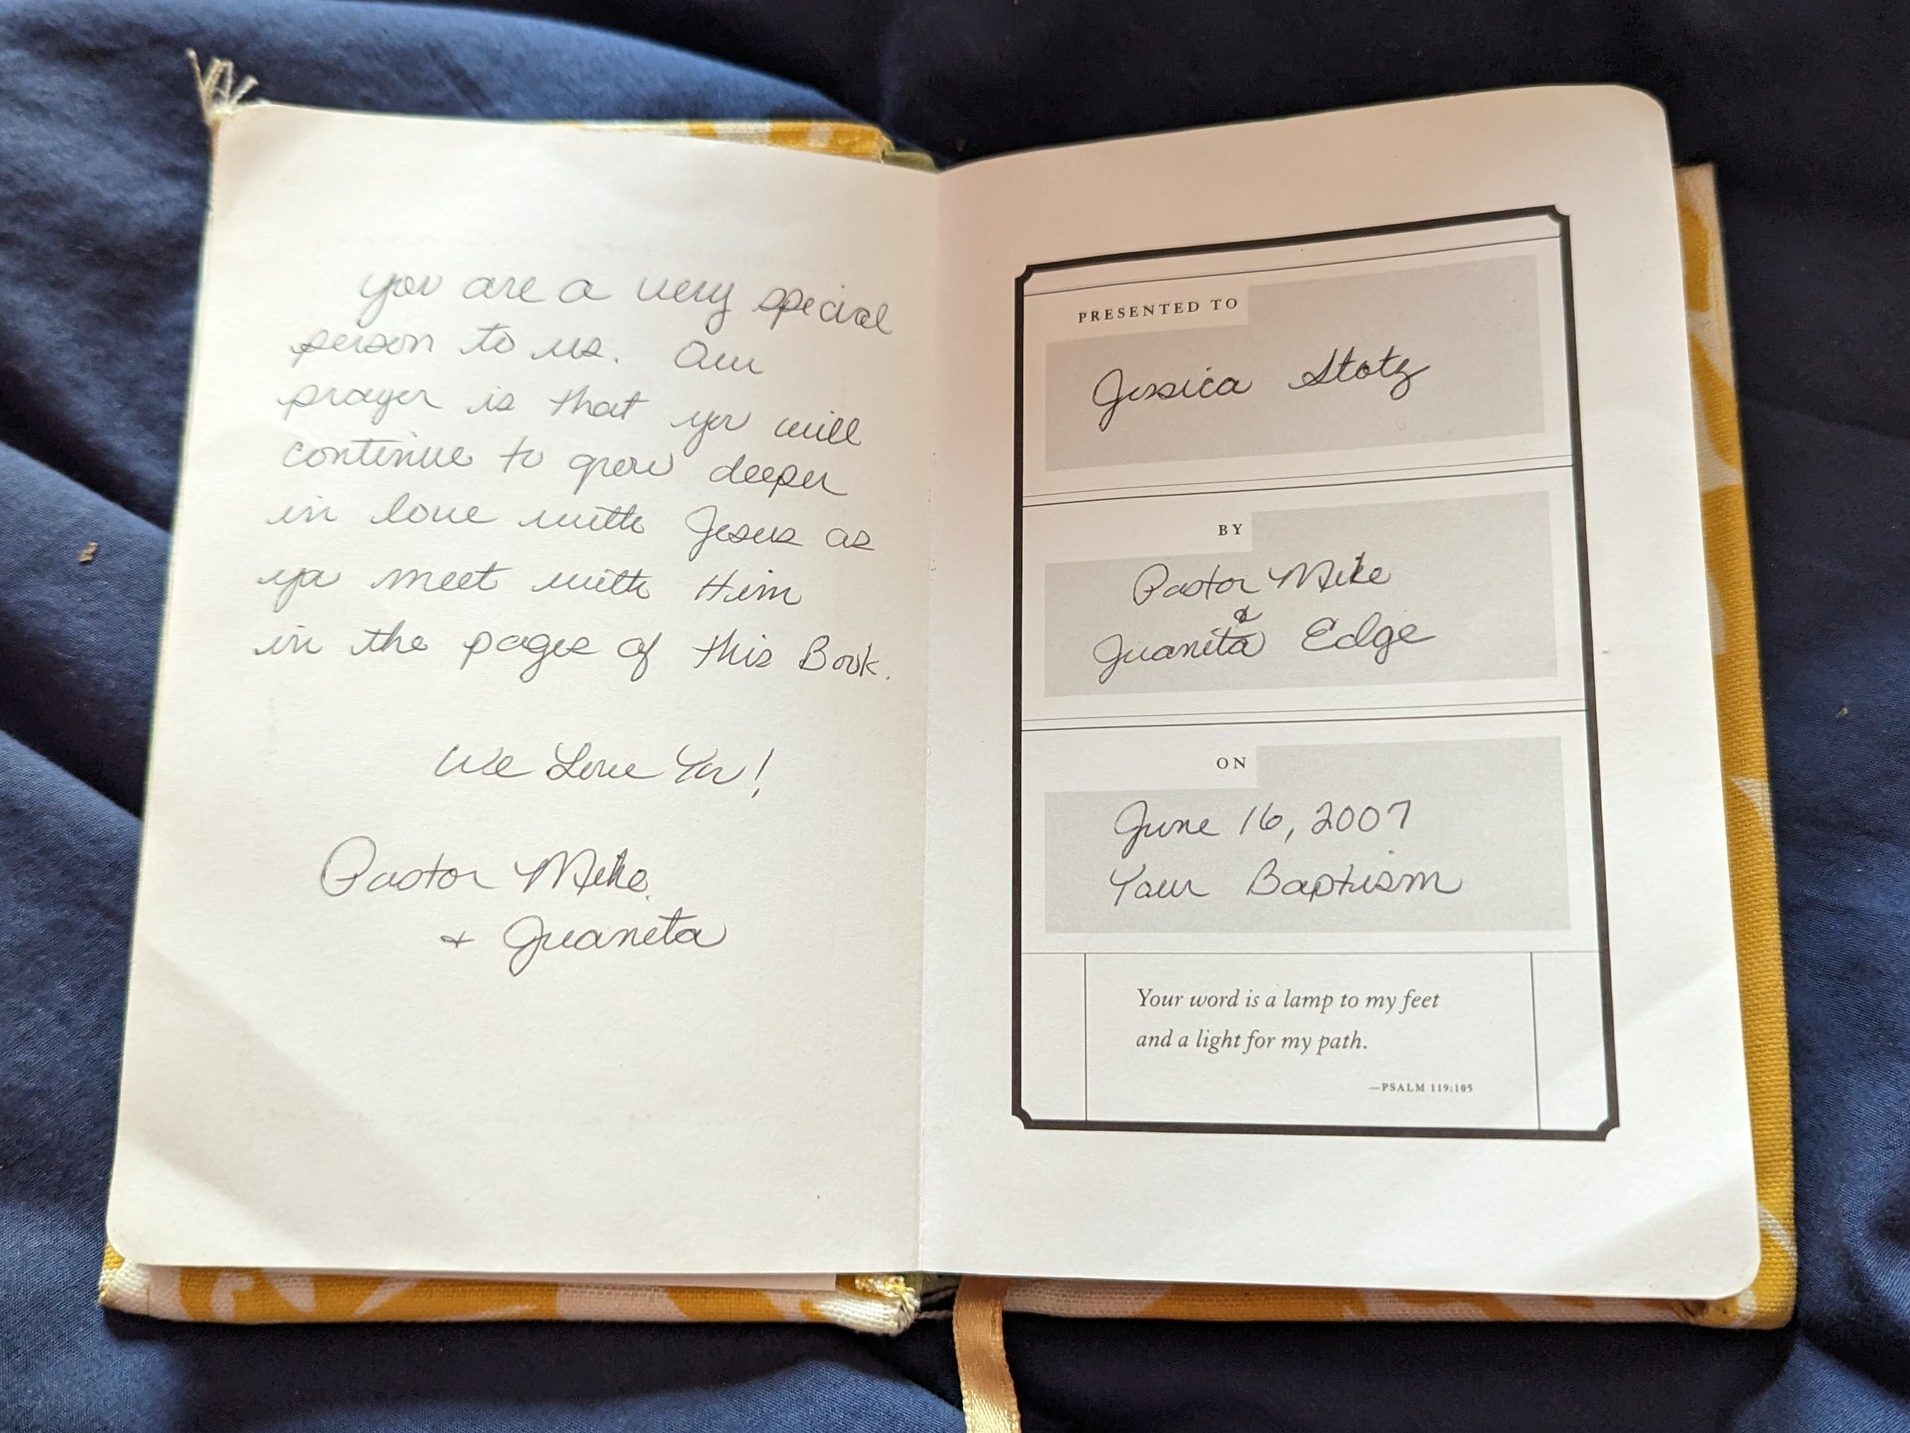 you are a very special
person to us. Our
prayer is that you will
continue to grow deeper
in love with Jesus as
you meet with Him
in the pages of this Book.
We Love You!
Pastor Mike
& Juanita
PRESENTED TO
Jessica Stotz
BY
Pastor Mike
&
Juanita Edge
ON
June 16, 2007
Your Baptism
Your word is a lamp to my feet
and a light for my path.
—PSALM 119:105